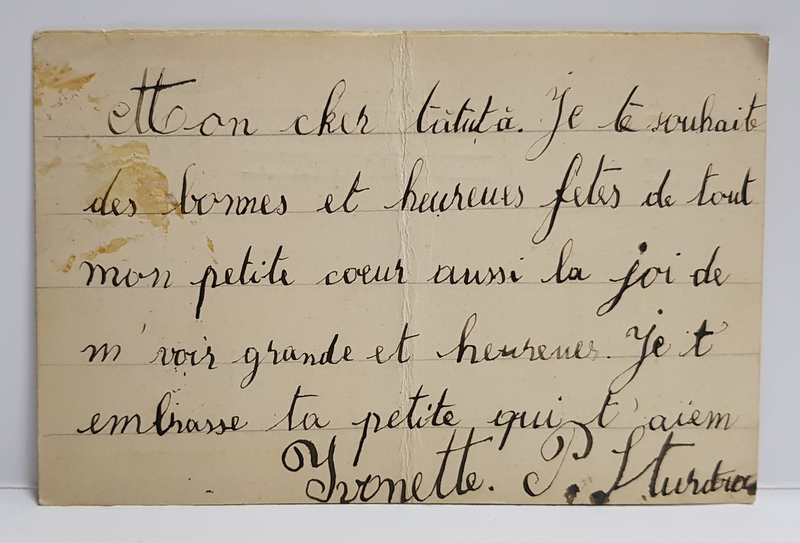 Mon cher tătuţă. Je te souhaite
des bonnes et heureues fetes de tout
mon petite coeur aussi la joi de
m' voir grande et heureues. Je t'
embrasse ta petite qui t'aiem
Yvonette. P. Sturdza